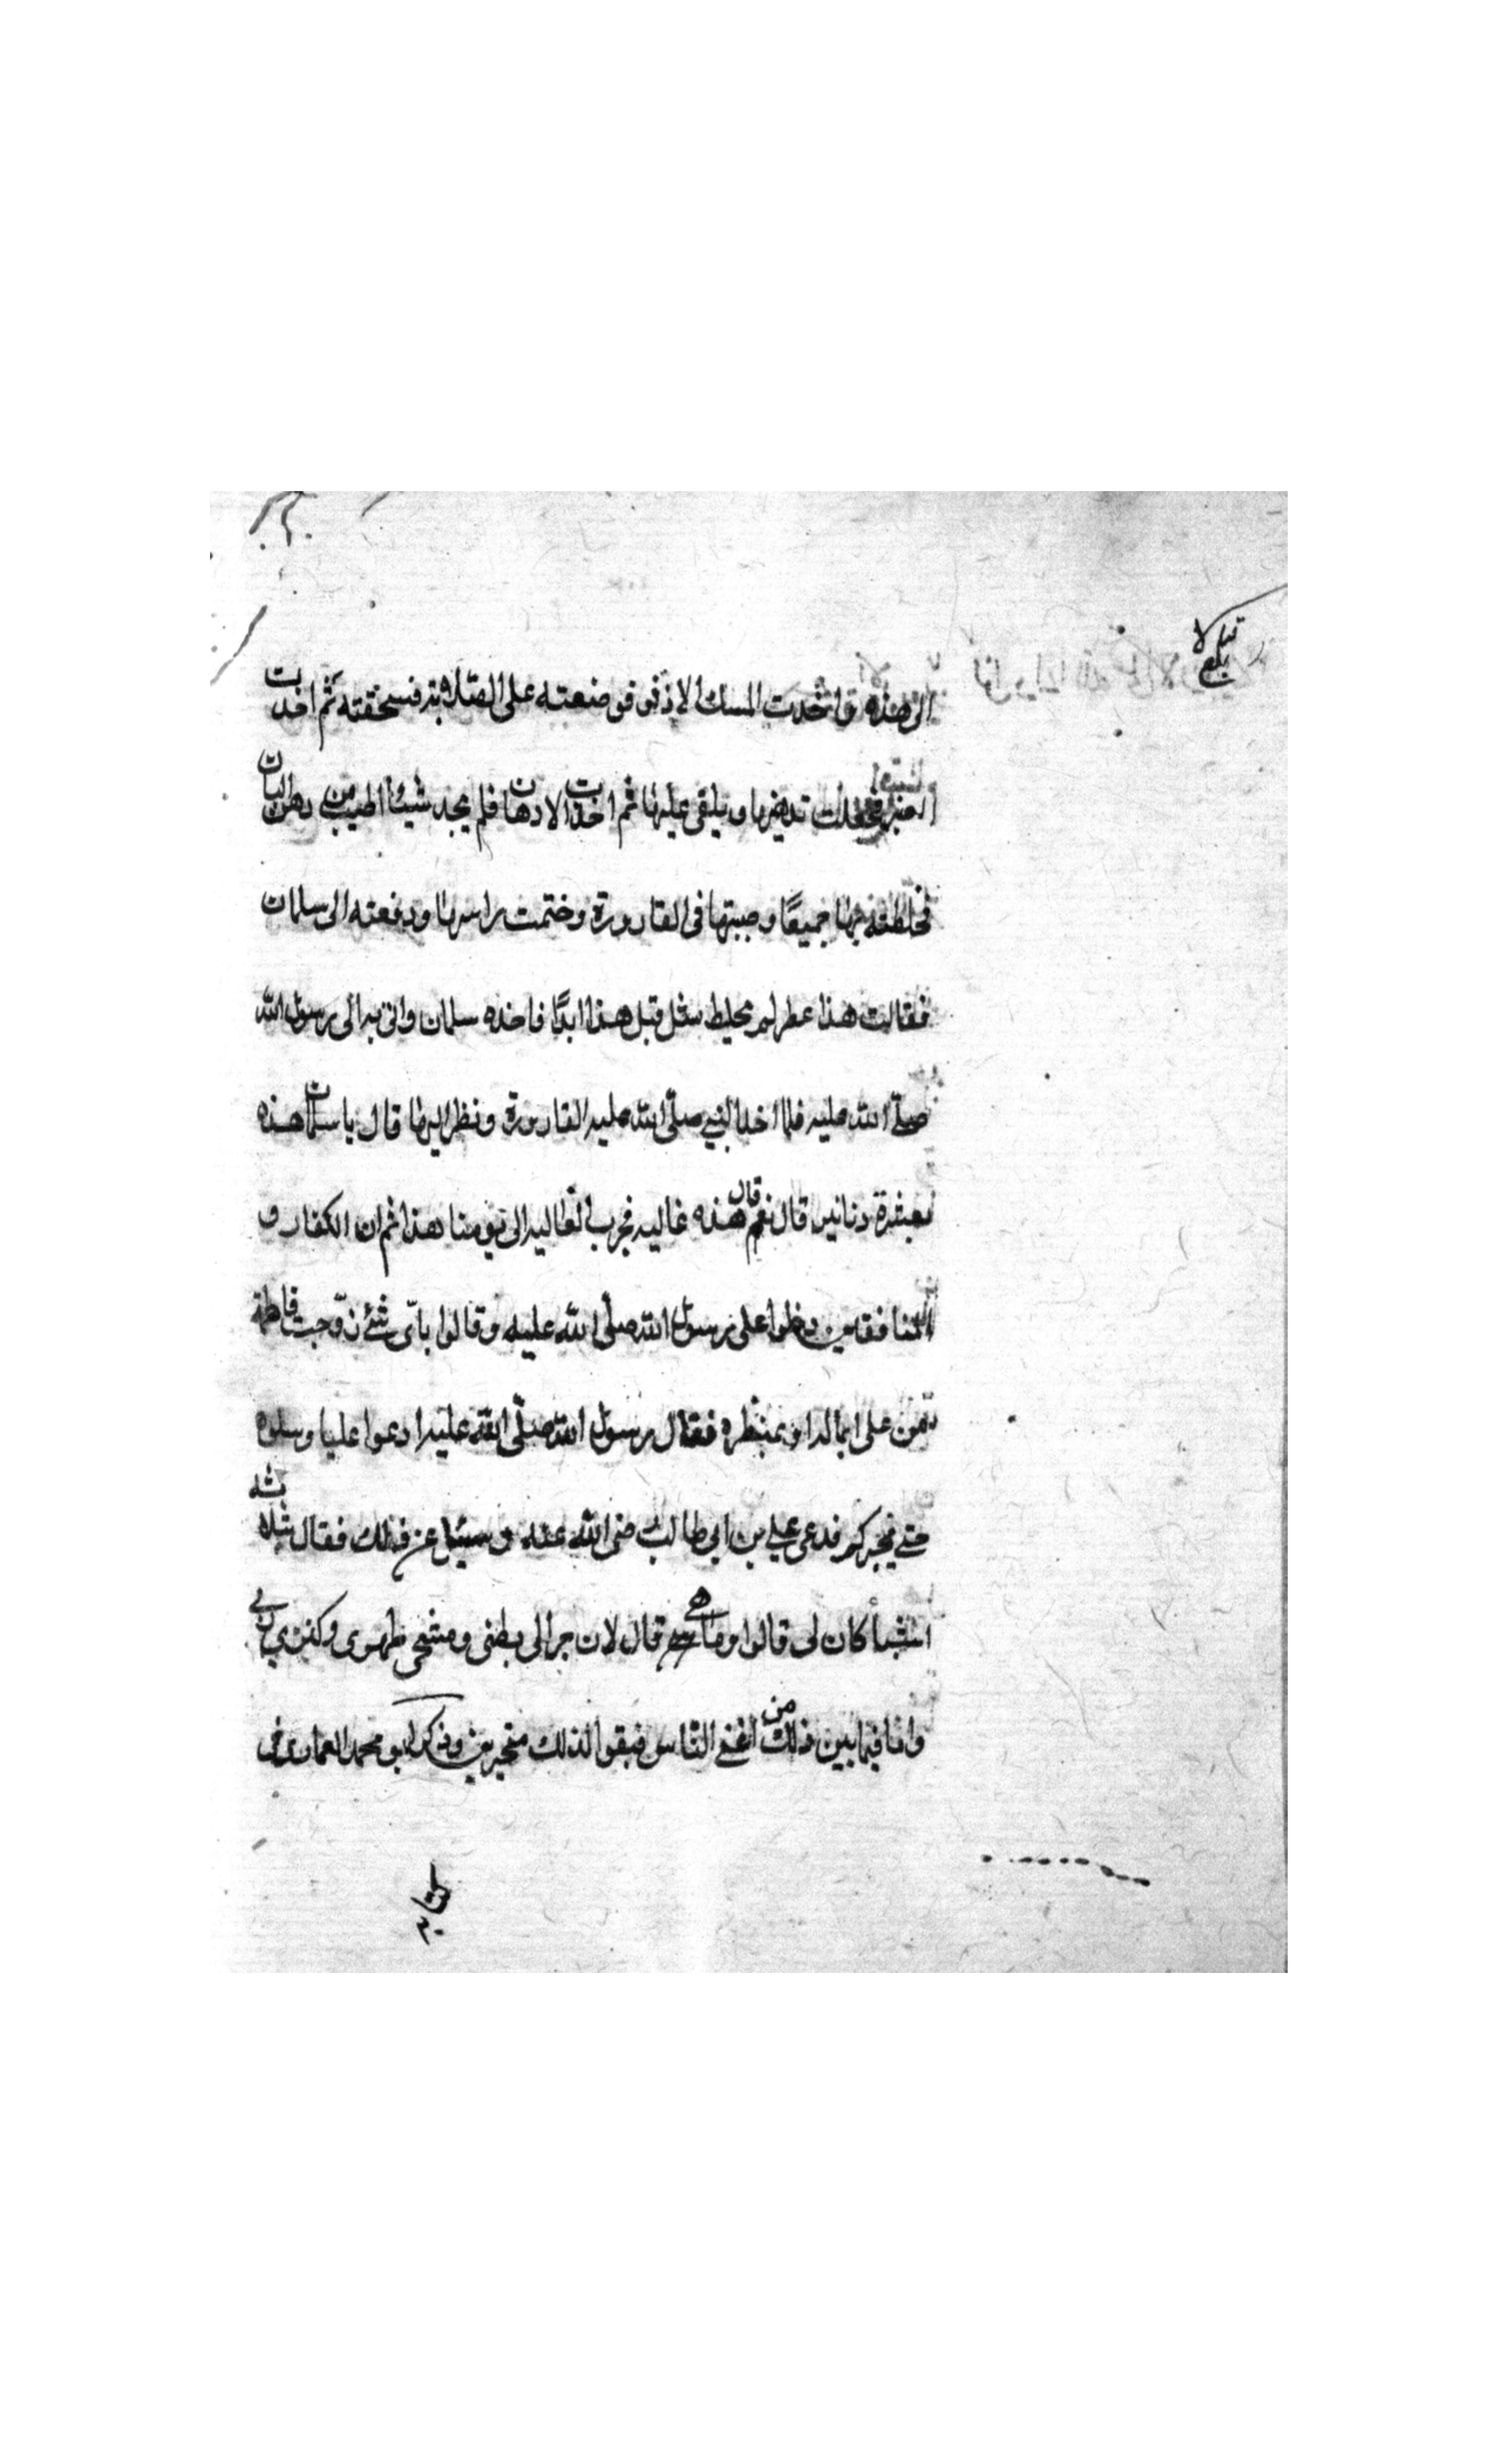 الى هذه فاخدت المسك الاذفر فوضعته على الصلابة فسحقته ثم اخذت
العنبر فجعلت تديفها ويلقى عليها ثم اخذت الادهان فلم يجد شيئا اطيب من دهن البان
فخلطته بها جميعًا وصبتها فى القارورة وختمت راسها ودفعته الى سلمان
فقالت هذا عطر لم يخلط مثل قبل هذا ابدًا فاخذه سلمان واتى به الى رسول الله
صلّى الله عليه فلما اخذ النبي صلّى الله عليه القارورة ونظر اليها قال يا سلمان هذه
بعشرة دنانير قال نعم قال هذه غاليه فجرت الغاليه الى يومنا هذا ثم ان الكفار و
المنافقين دخلوا على رسول الله صلّى الله عليه وقالوا باىّ شئ زوّجت فاطمة
من على ابماله او بمنظره فقال رسول الله صلّى الله عليه ادعوا عليا وسلوه
حتى يخبركم فدعى على بن ابى طالب رضى الله عنه عن ذلك فقال بثلاثه
اشيأ كان لى قالوا وما هي قال لان جرالى بطنى ومشحى ظهرى وكنزي
وانا فيما بين ذلك من اغنى النّاس فبقوا لذلك متحيرين وذكر ابو محمد
بلغ